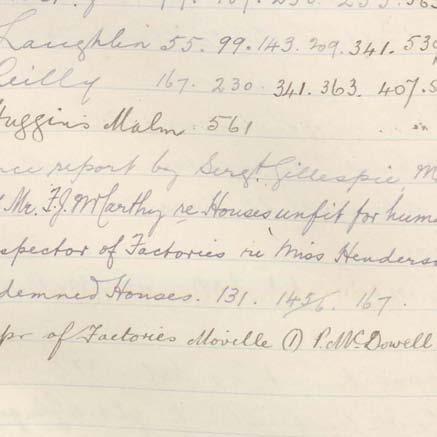 Laughlin 55. 99. 143. 209. 341. 530
eilly 167. 230. 341. 363. 407. 5
Huggins Malm. 561
nce report by Sergt. Gillespie, M
Mr. F.J. McCarthy re Houses unfit for huma
spector of Factories re Miss Henders
demned Houses. 131. 1456. 167.
pr of Factories Moville (1) P. McDowell